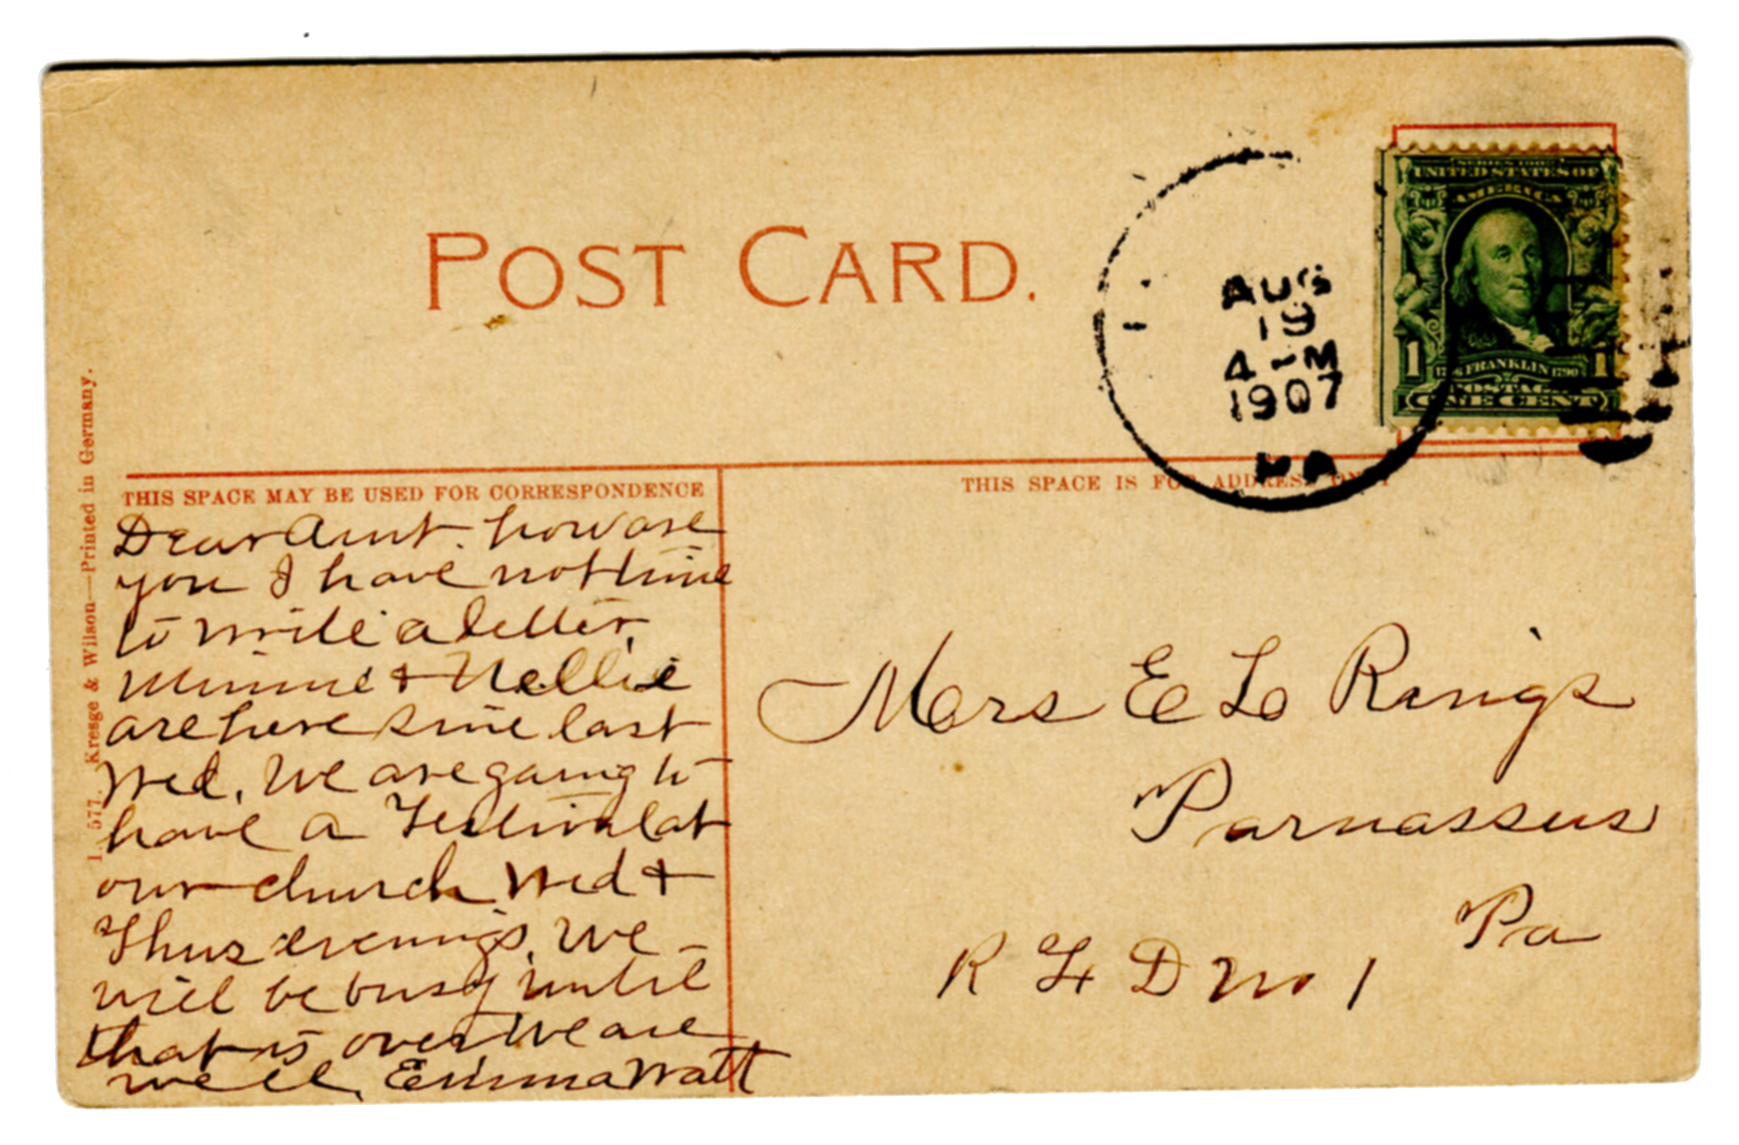 POST CARD.
AUG
19
4-M
1907
PA
SERIES 1902
UNITED STATES OF
AMERICA
1 FRANKLIN 1790 1
POSTAGE
ONE CENT
THIS SPACE MAY BE USED FOR CORRESPONDENCE
THIS SPACE IS FOR ADDRESS ONLY
Dear Aunt. how are
you I have not time
to write a letter.
Minnie + Nellie
are here sine last
Wed. We are going to
have a Festival at
our church Wed +
Thurs evenings. We
will be busy until
that is over We are
well. Emma Watt
Mrs E L Rings
Parnassus
Pa
R F D No 1
I 577. Kresge & Wilson—Printed in Germany.